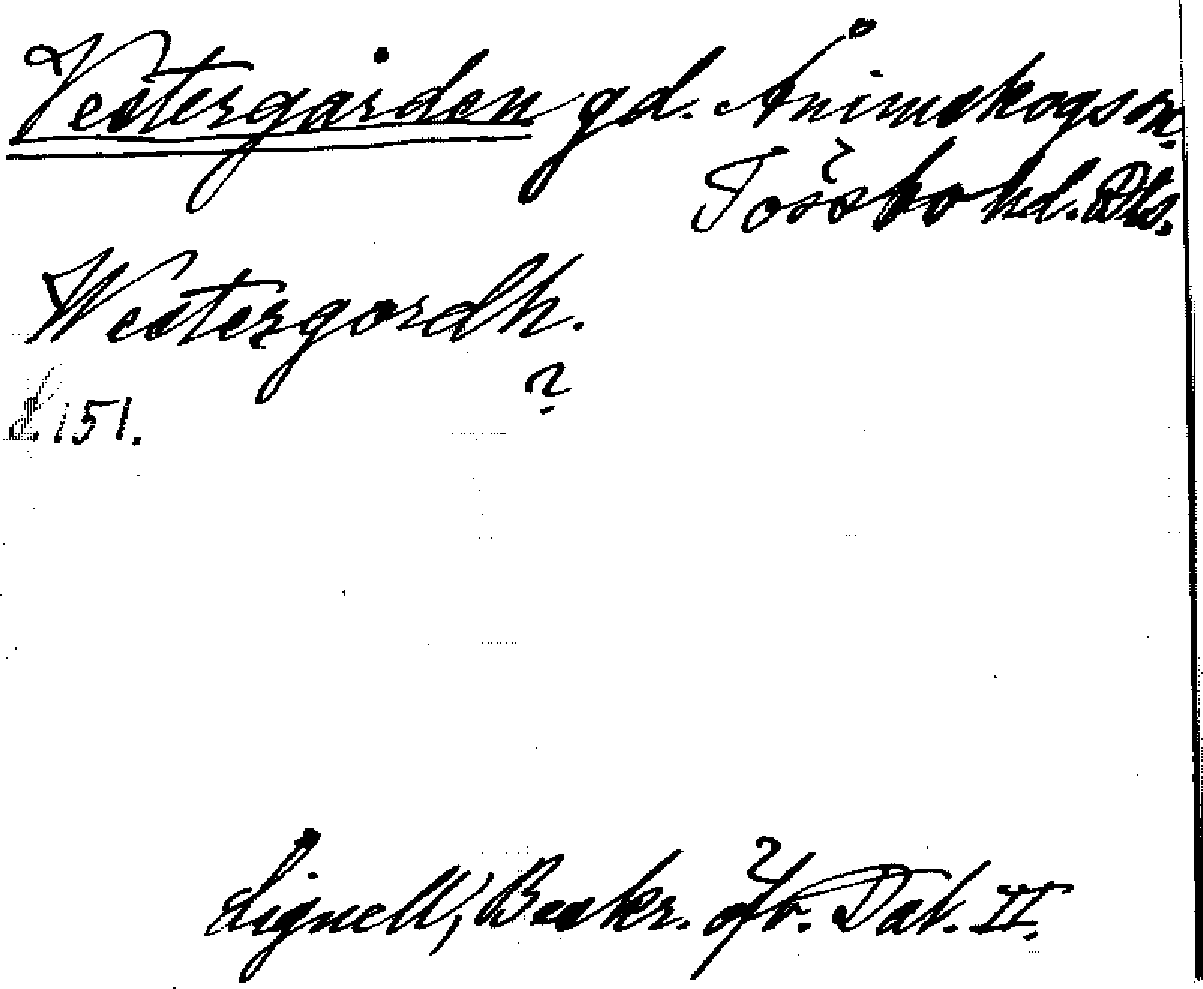 Vestergården gd. Ånimskogs sn.
Tössbo hd. Dls.
Westergordh.
?
s. 151.
Lignell, Beskr. öfv. Dal. II.